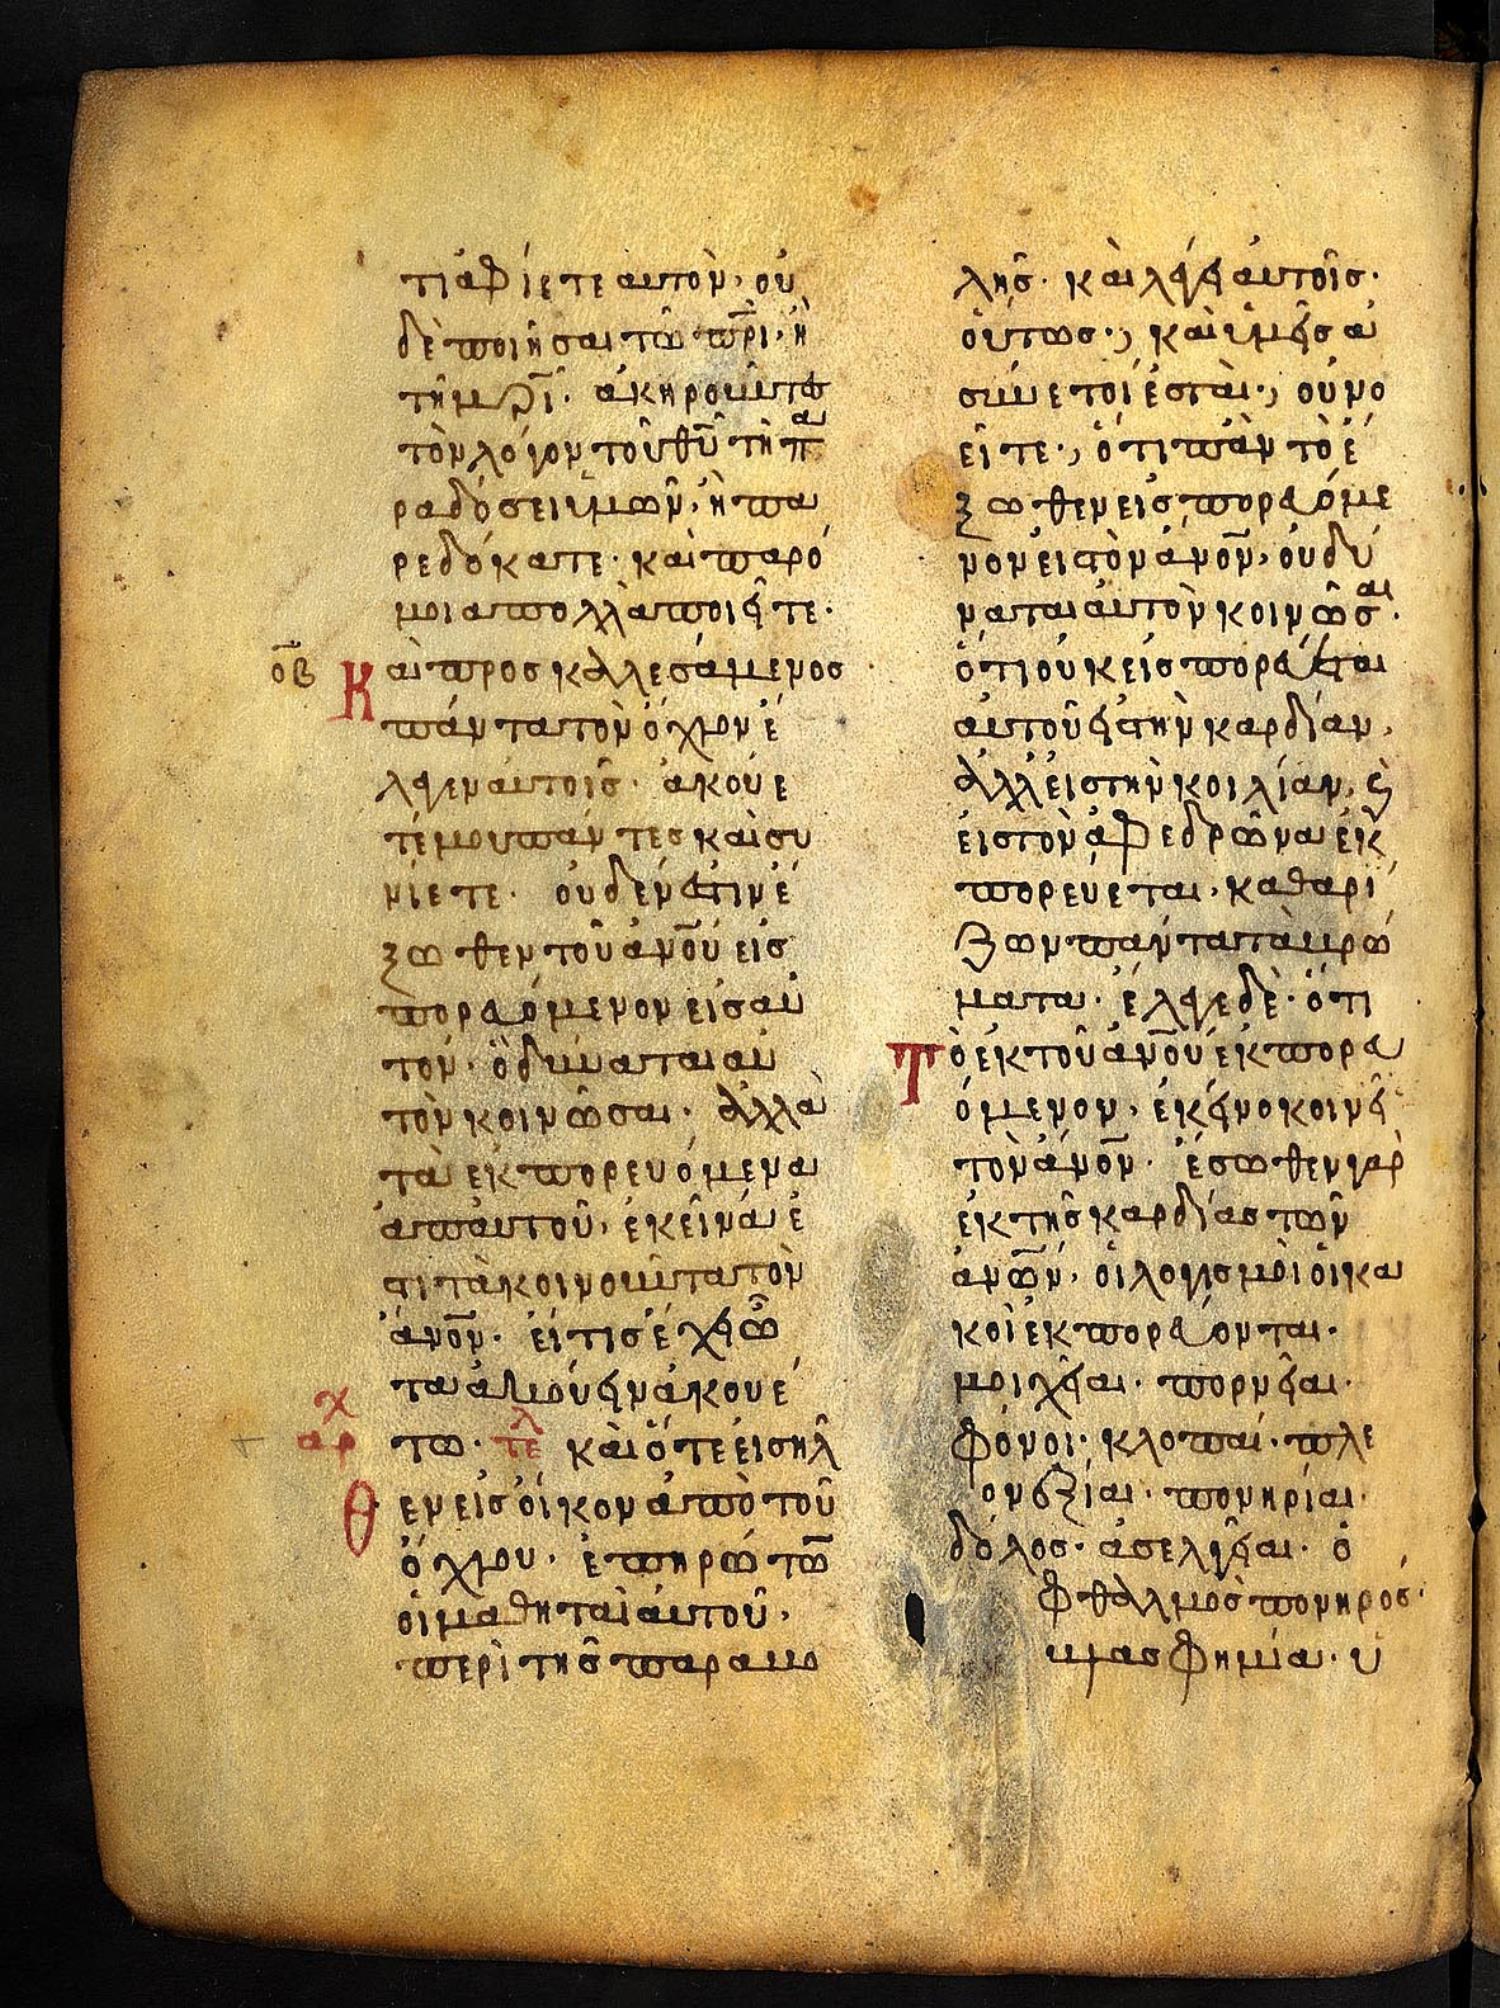 τι ἀφίετε αυτὸν, οὐ
δὲ ποιῆσαι τῶ π̅ρ̅ι, ἢ
τῆ μ̅ρ̅ι. ἀκηροῦντες
τὸν λόγον τοῦ θ̅υ̅ τῆ πα
ραδόσει ὑμῶν, ἣ πα
ρεδόκατε. και παρό
μοια πολλὰ ποιεῖτε.
ο̅β̅
Και προσκαλεσάμενος
πάντα τὸν ὄχλον ἔ
λεγεν αυτοῖς. ἀκούε
τέ μου πάντες καὶ συ
νίετε. οὐδέν ἐστιν ἔ
ξωθεν τοῦ ἀ̅ν̅ο̅υ̅ εἰσ
πορευόμενον εἰς αὐ
τόν. ὃ δύναται αὐ
τὸν κοινῶσαι. ἀλλὰ
τὰ ἐκπορευόμενα
ἀπ αυτοῦ, ἐκεῖνά ἐ
στι τὰ κοινοῦντα τὸν
ἄ̅ν̅ο̅ν̅. εἴ τις ἔχει ὦ
τα ἀκούειν ἀκουέ
τω. τελ και ὅτε εἰσῆλ
χ
αρ
Θεν εἰς οἶκον ἀπὸ τοῦ
ὄχλου. ἐπηρώτων
οἱ μαθηταὶ αυτοῦ,
περὶ τῆς παραβο
λῆς. καὶ λέγει αυτοῖς.
ὅυτως·, καὶ ὑμεῖς ἀ
σύνετοί ἐσται·, οὐ νο
εῖτε·, ὅτι πᾶν τὸ ἔ
ξωθεν εἰσπορευόμε
νον εἰς τὸν ἄ̅ν̅ο̅ν̅, οὐ δύ
ναται αυτὸν κοινῶσαι.
ὅτι οὐκ εἰσπορεύεται
αυτοῦ εἰς τὴν καρδίαν,
ἀλλ εἰς τὴν κοιλίαν, κ(αὶ)
εἰς τὸν ἀφεδρῶνα ἐκ
πορευεται, καθαρί
ζων πάντα τὰ βρώ
ματα. ἔλεγε δὲ. ὅτι
Τὸ ἐκ τοῦ ἀ̅ν̅ο̅υ̅ ἐκπορευ
όμενον, ἐκεῖνο κοινεῖ
τὸν ἄ̅ν̅ο̅ν̅. ἔσωθεν γὰρ
ἐκ τῆς καρδίας τῶν
ἀ̅ν̅ω̅ν̅, οἱ λογισμοὶ οἱ κα
κοὶ ἐκπορεύονται.
μοιχεῖαι. πορνεῖαι.
φόνοι. κλοπαί. πλε
ονεξίαι. πονηρίαι.
δόλος. ἀσελγεῖαι. ὀ
φθαλμὸς πονηρός.
βλασφημία. ὑ